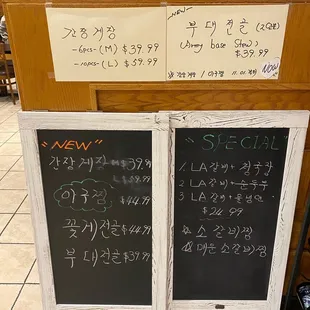 간장게장
-6pcs-(M) $39.99
-10pcs-(L) $59.99
NEW
부대전골 (2인분)
(Army base Stew)
$39.99
"NEW"
간장게장 $39.99
아구찜
$44.99
꽃게전골 $44.99
부대전골 $39.99
SPECIAL
1 LA갈비 + 청국장
2 LA갈비 + 순두부
3 LA갈비 + 물냉면
$24.99
소갈비찜
매운소갈비찜